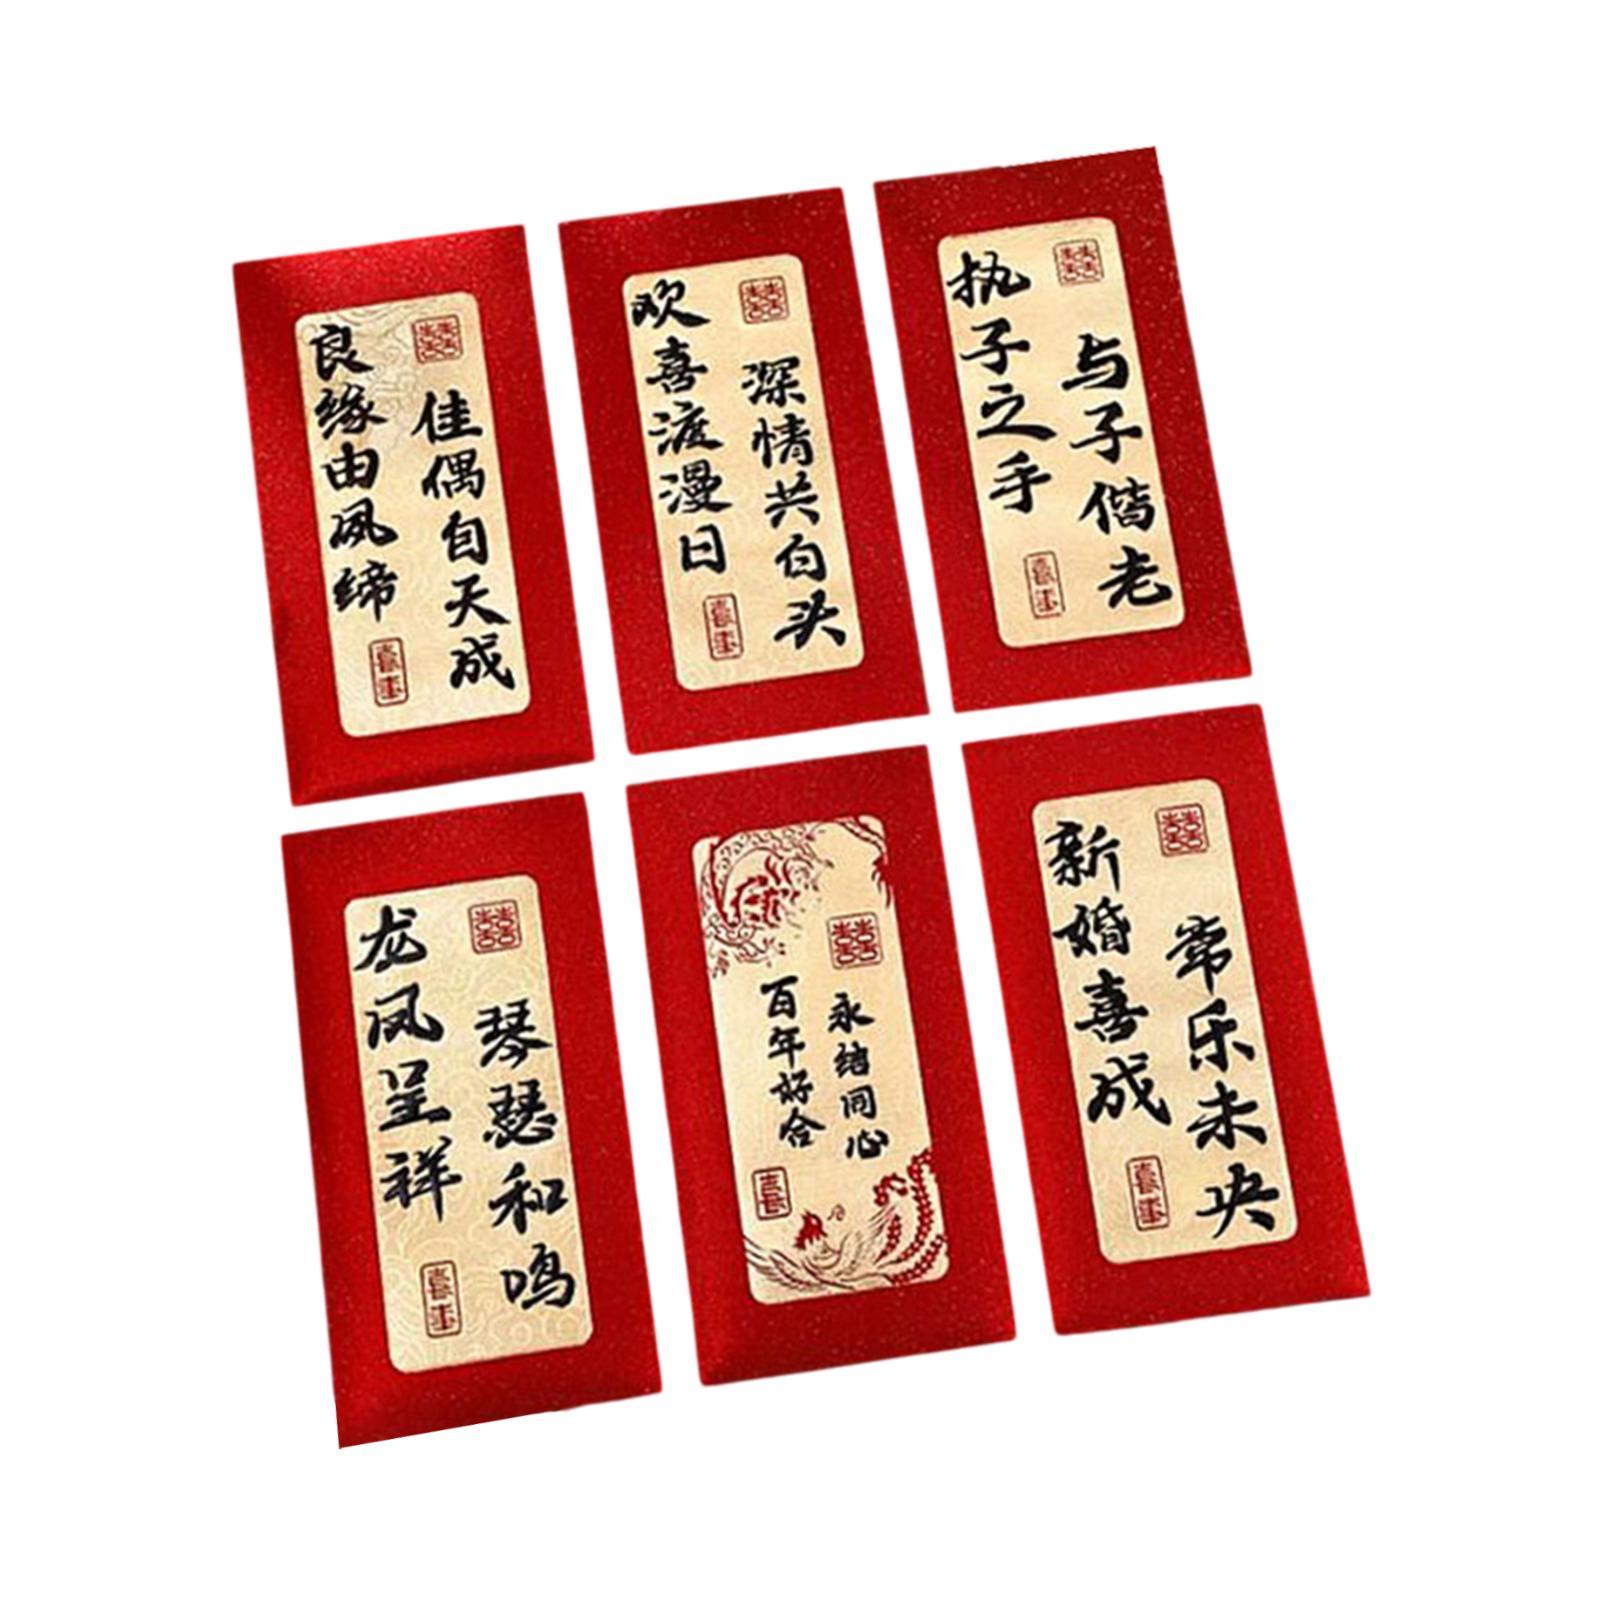 良缘由夙缔
佳偶自天成
囍
欢喜渡漫日
深情共白头
囍
执子之手
与子偕老
囍
龙凤呈祥
琴瑟和鸣
囍
百年好合
永结同心
囍
喜
新婚喜成
常乐未央
囍